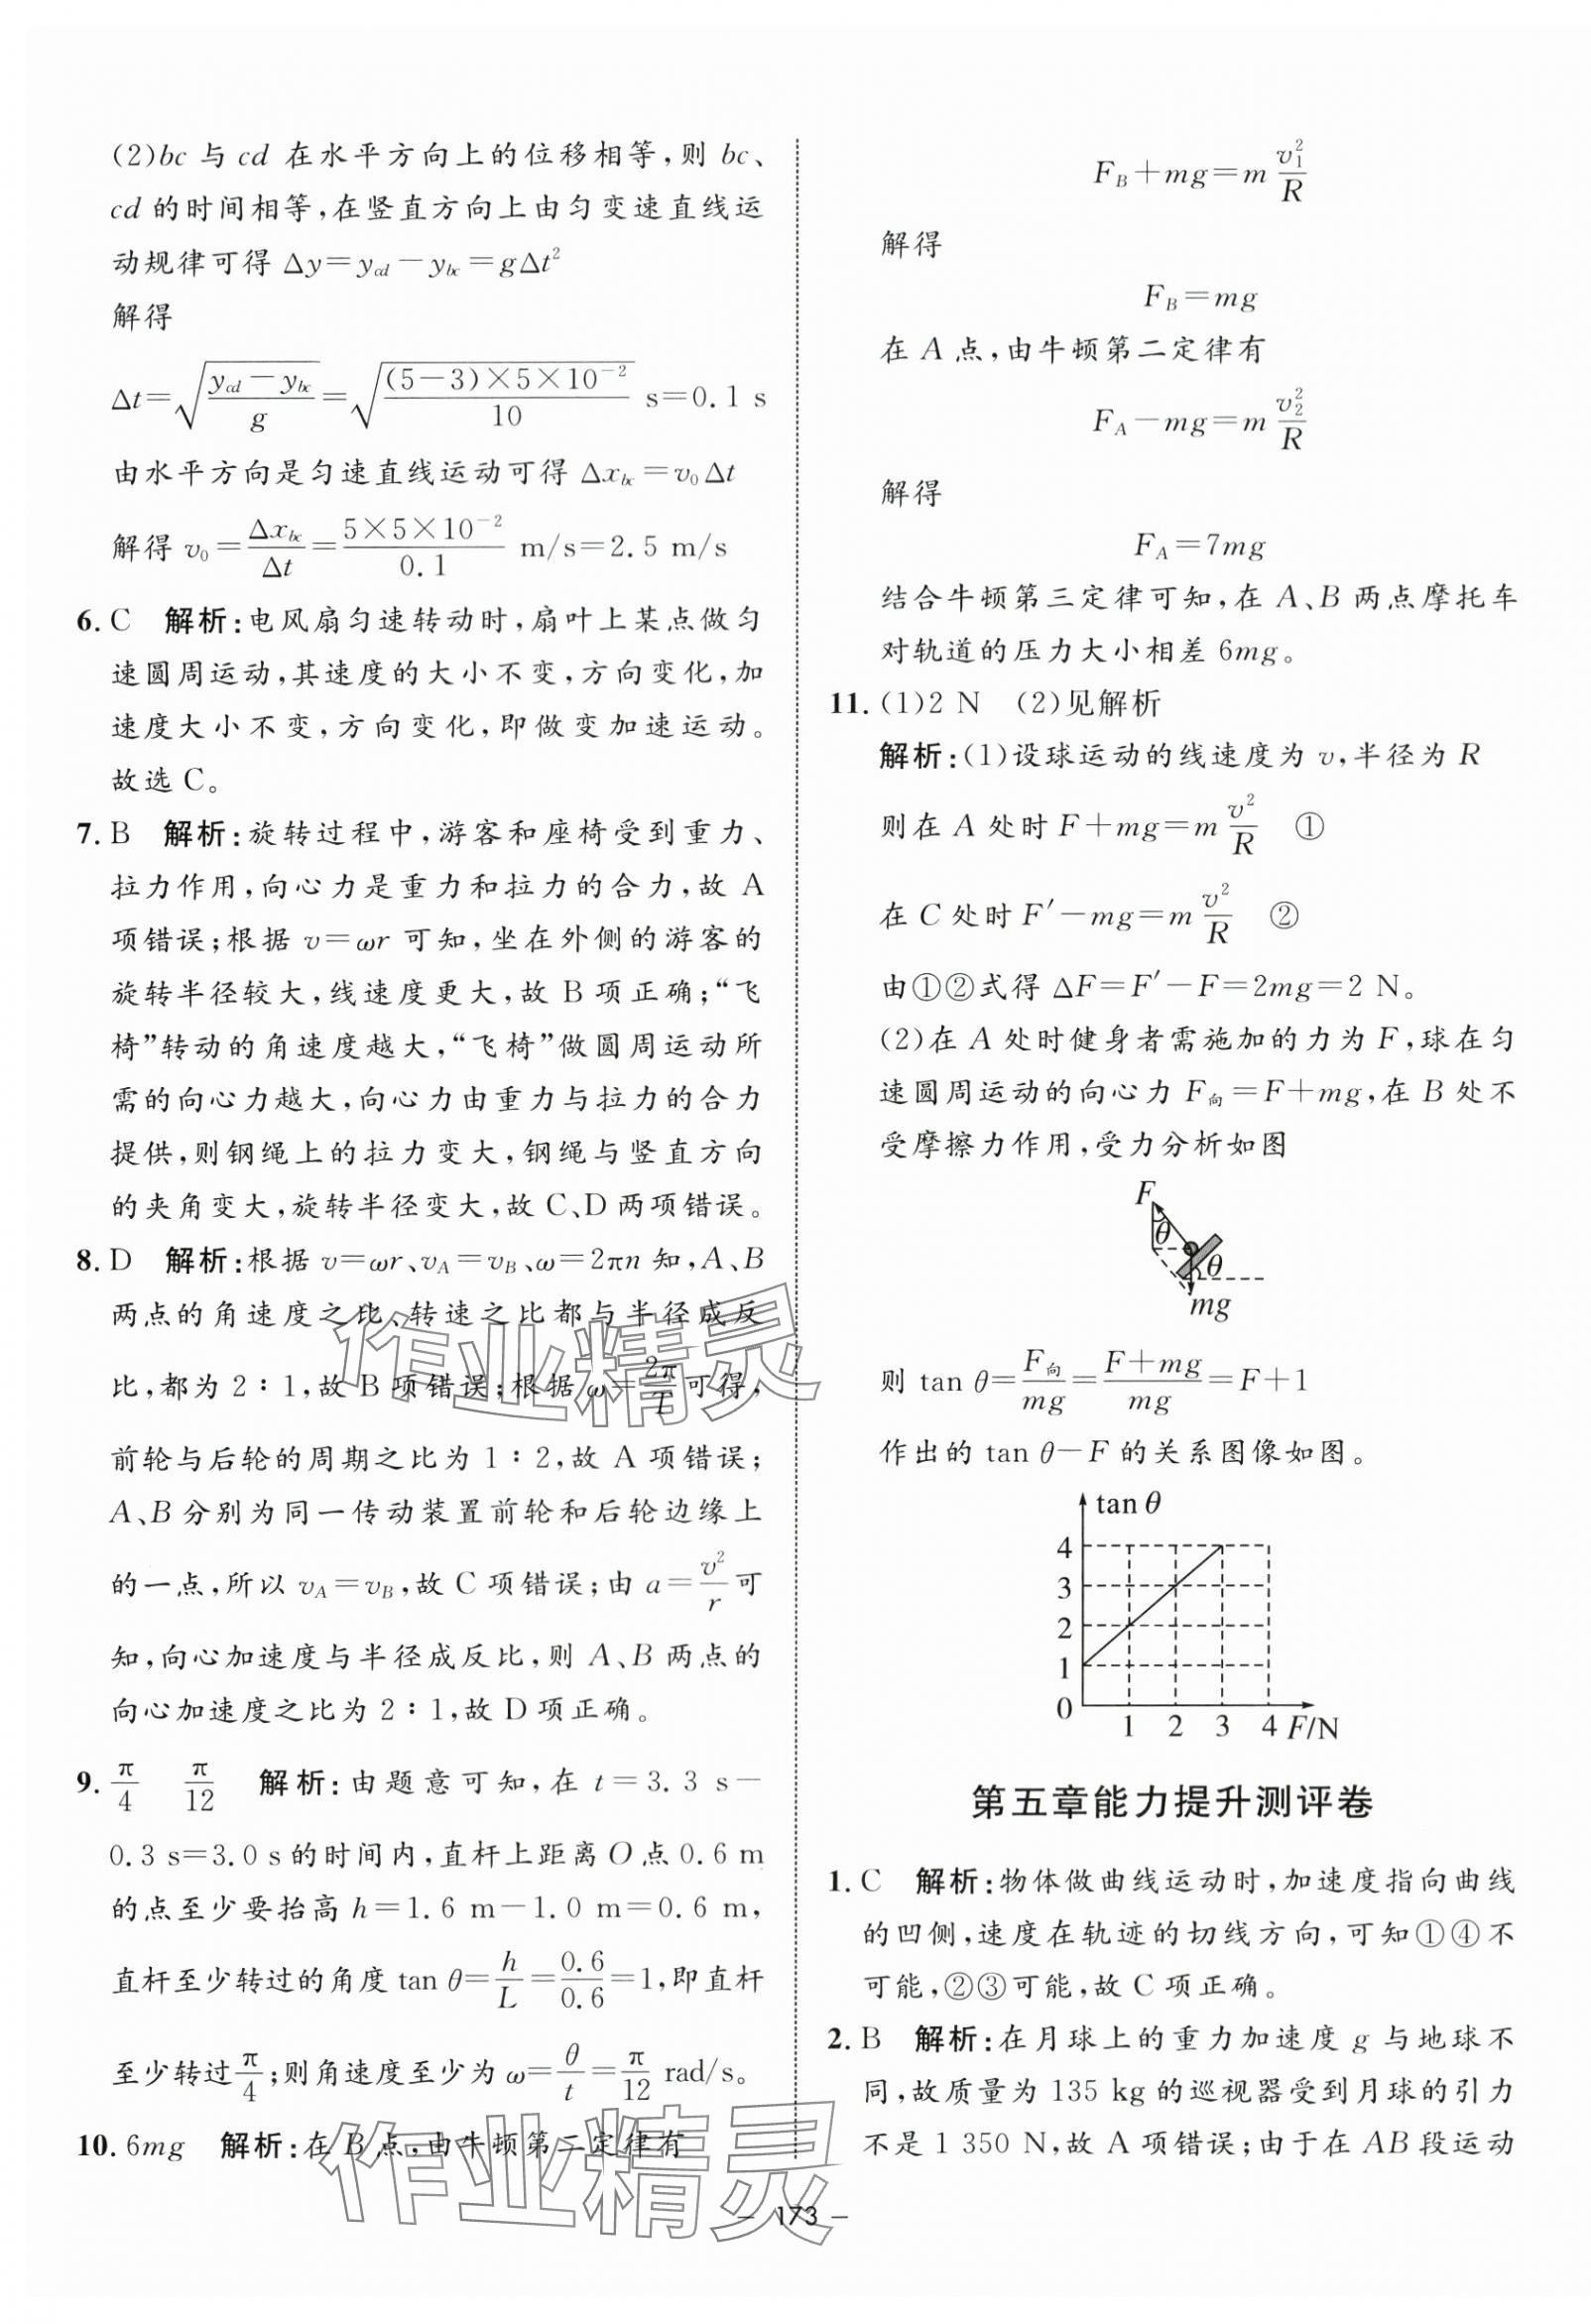 (2)bc 与 cd 在水平方向上的位移相等,则 bc、
cd 的时间相等,在竖直方向上由匀变速直线运
动规律可得 Δy=y_cd-y_bc=gΔt²
解得
Δt=√((y_cd-y_bc)/g)=√((5-3)×5×10⁻²/10) s=0.1 s
由水平方向是匀速直线运动可得 Δx_bc=v₀Δt
解得 v₀=Δx_bc/Δt=5×5×10⁻²/0.1 m/s=2.5 m/s
6. C 解析:电风扇匀速转动时,扇叶上某点做匀
速圆周运动,其速度的大小不变,方向变化,加
速度大小不变,方向变化,即做变加速运动。
故选 C。
7. B 解析:旋转过程中,游客和座椅受到重力、
拉力作用,向心力是重力和拉力的合力,故 A
项错误;根据 v=ωr 可知,坐在外侧的游客的
旋转半径较大,线速度更大,故 B 项正确;“飞
椅”转动的角速度越大,“飞椅”做圆周运动所
需的向心力越大,向心力由重力与拉力的合力
提供,则钢绳上的拉力变大,钢绳与竖直方向
的夹角变大,旋转半径变大,故 C、D 两项错误。
8. D 解析:根据 v=ωr、v_A=v_B、ω=2πn 知,A、B
两点的角速度之比、转速之比都与半径成反
比,都为 2∶1,故 B 项错误;根据 ω=2π/T 可得,
前轮与后轮的周期之比为 1∶2,故 A 项错误;
A、B 分别为同一传动装置前轮和后轮边缘上
的一点,所以 v_A=v_B,故 C 项错误;由 a=v²/r 可
知,向心加速度与半径成反比,则 A、B 两点的
向心加速度之比为 2∶1,故 D 项正确。
9. π/4 π/12 解析:由题意可知,在 t=3.3 s-
0.3 s=3.0 s 的时间内,直杆上距离 O 点 0.6 m
的点至少要抬高 h=1.6 m-1.0 m=0.6 m,
直杆至少转过的角度 tan θ=h/L=0.6/0.6=1,即直杆
至少转过 π/4;则角速度至少为 ω=θ/t=π/12 rad/s。
10. 6mg 解析:在 B 点,由牛顿第二定律有
F_B+mg=m v₁²/R
解得
F_B=mg
在 A 点,由牛顿第二定律有
F_A-mg=m v₂²/R
解得
F_A=7mg
结合牛顿第三定律可知,在 A、B 两点摩托车
对轨道的压力大小相差 6mg。
11. (1)2 N (2)见解析
解析:(1)设球运动的线速度为 v,半径为 R
则在 A 处时 F+mg=m v²/R ①
在 C 处时 F′-mg=m v²/R ②
由①②式得 ΔF=F′-F=2mg=2 N。
(2)在 A 处时健身者需施加的力为 F,球在匀
速圆周运动的向心力 F_向=F+mg,在 B 处不
受摩擦力作用,受力分析如图
F
θ
θ
mg
则 tan θ=F_向/mg=(F+mg)/mg=F+1
作出的 tan θ-F 的关系图像如图。
tan θ
4
3
2
1
0
1 2 3 4 F/N
第五章能力提升测评卷
1. C 解析:物体做曲线运动时,加速度指向曲线
的凹侧,速度在轨迹的切线方向,可知①④不
可能,②③可能,故 C 项正确。
2. B 解析:在月球上的重力加速度 g 与地球不
同,故质量为 135 kg 的巡视器受到月球的引力
不是 1 350 N,故 A 项错误;由于在 AB 段运动
作业精灵
作业精灵
— 173 —